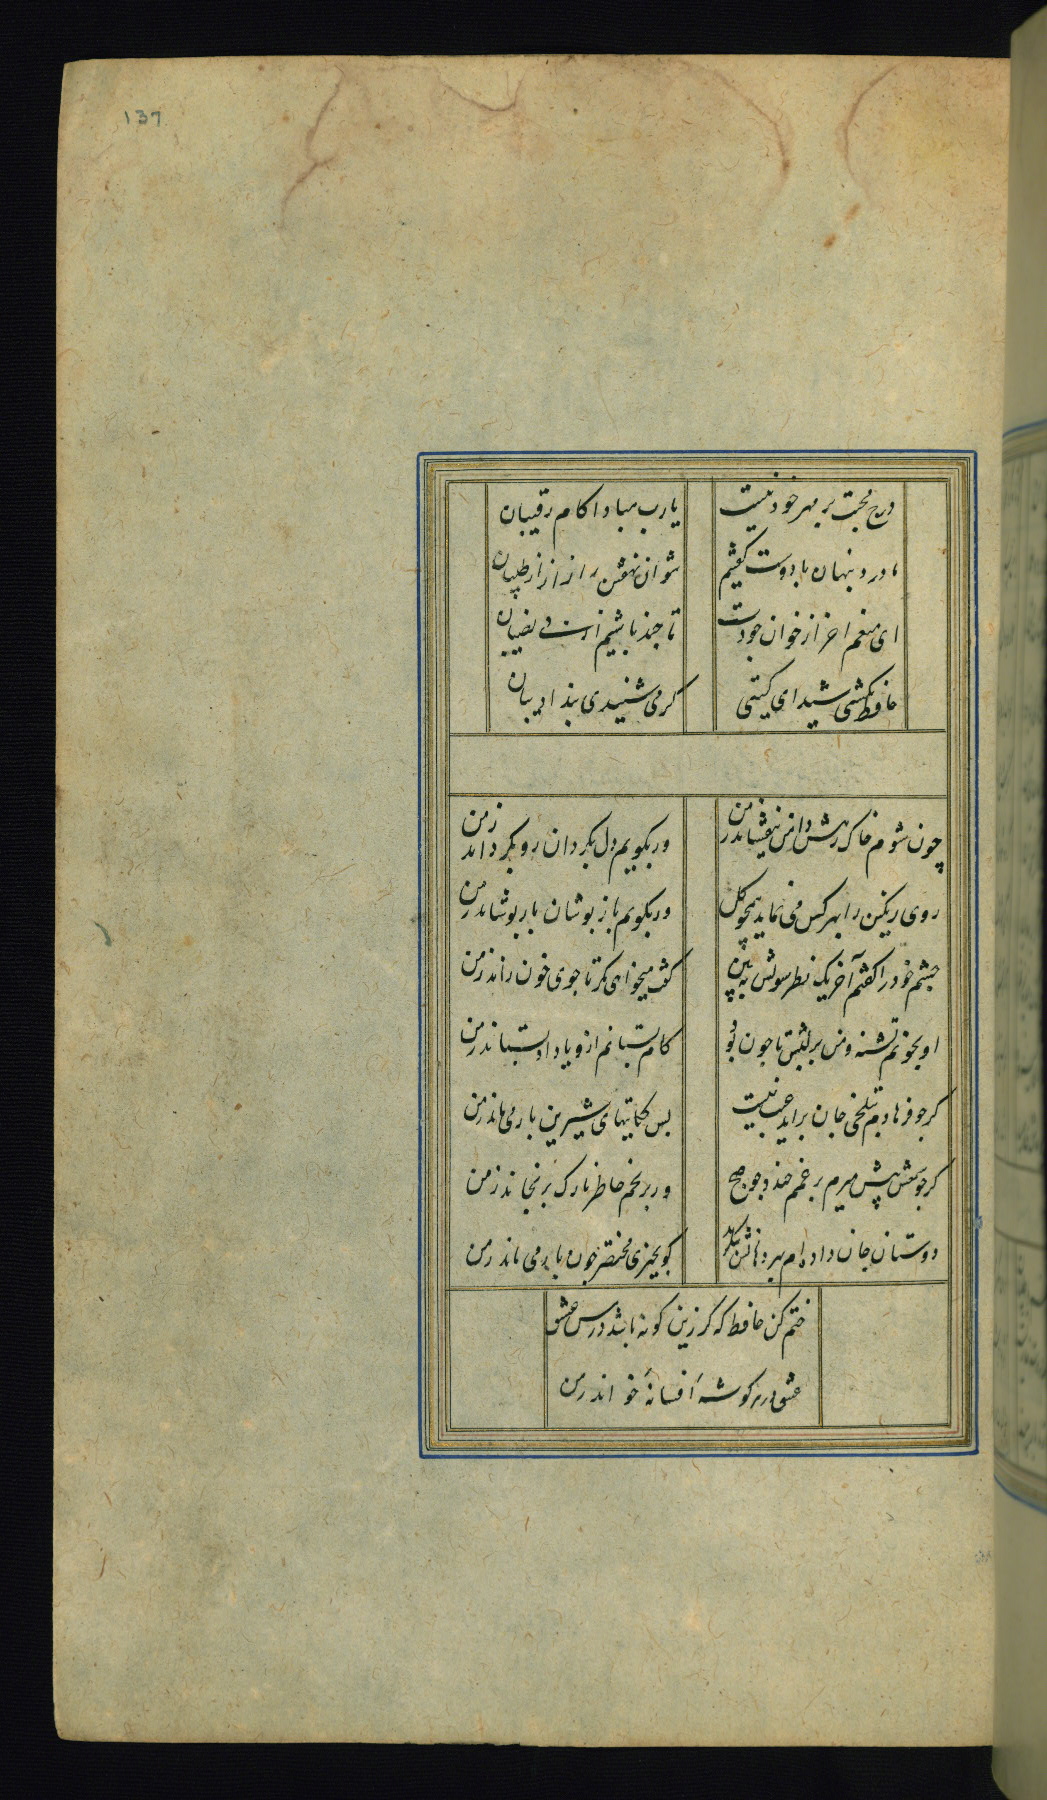 137
درج محبت بر مهر خود نیست
یارب مبادا کام رقیبان
ما درد پنهان با دوست گفتیم
نتوان نهفتن راز از طبیبان
ای منعم آخر از خوان جودت
تا چند باشیم از بی نصیبان
حافظ نگشتی شیدای گیتی
گر می شنیدی پند ادیبان
چون شوم خاک رهش دامن بیفشاند ز من
ور بگویم دل بگردان رو بگرداند ز من
روی رنگین را بهر کس می نماید همچو گل
ور بگویم باز پوشان باز پوشاند ز من
چشم خود را گفتم آخر یک نظر سیرش ببین
گفت میخواهی مگر تا جوی خون راند ز من
او بخونم تشنه و من بر لبش تا چون بود
کام بستانم ازو یا داد بستاند ز من
گر چو فرهادم بتلخی جان براید عیب نیست
بس حکایتهای شیرین باز می ماند ز من
گر چو شمعش پیش میرم بر غمم خندد چو صبح
ور برنجم خاطر نازک برنجاند ز من
دوستان جان داده ام بهر دهانش بنگرید
کو بچیزی مختصر چون باز می ماند ز من
ختم کن حافظ که گر زین گونه باشد درس عشق
عشق در هر گوشه افسانه خواند ز من